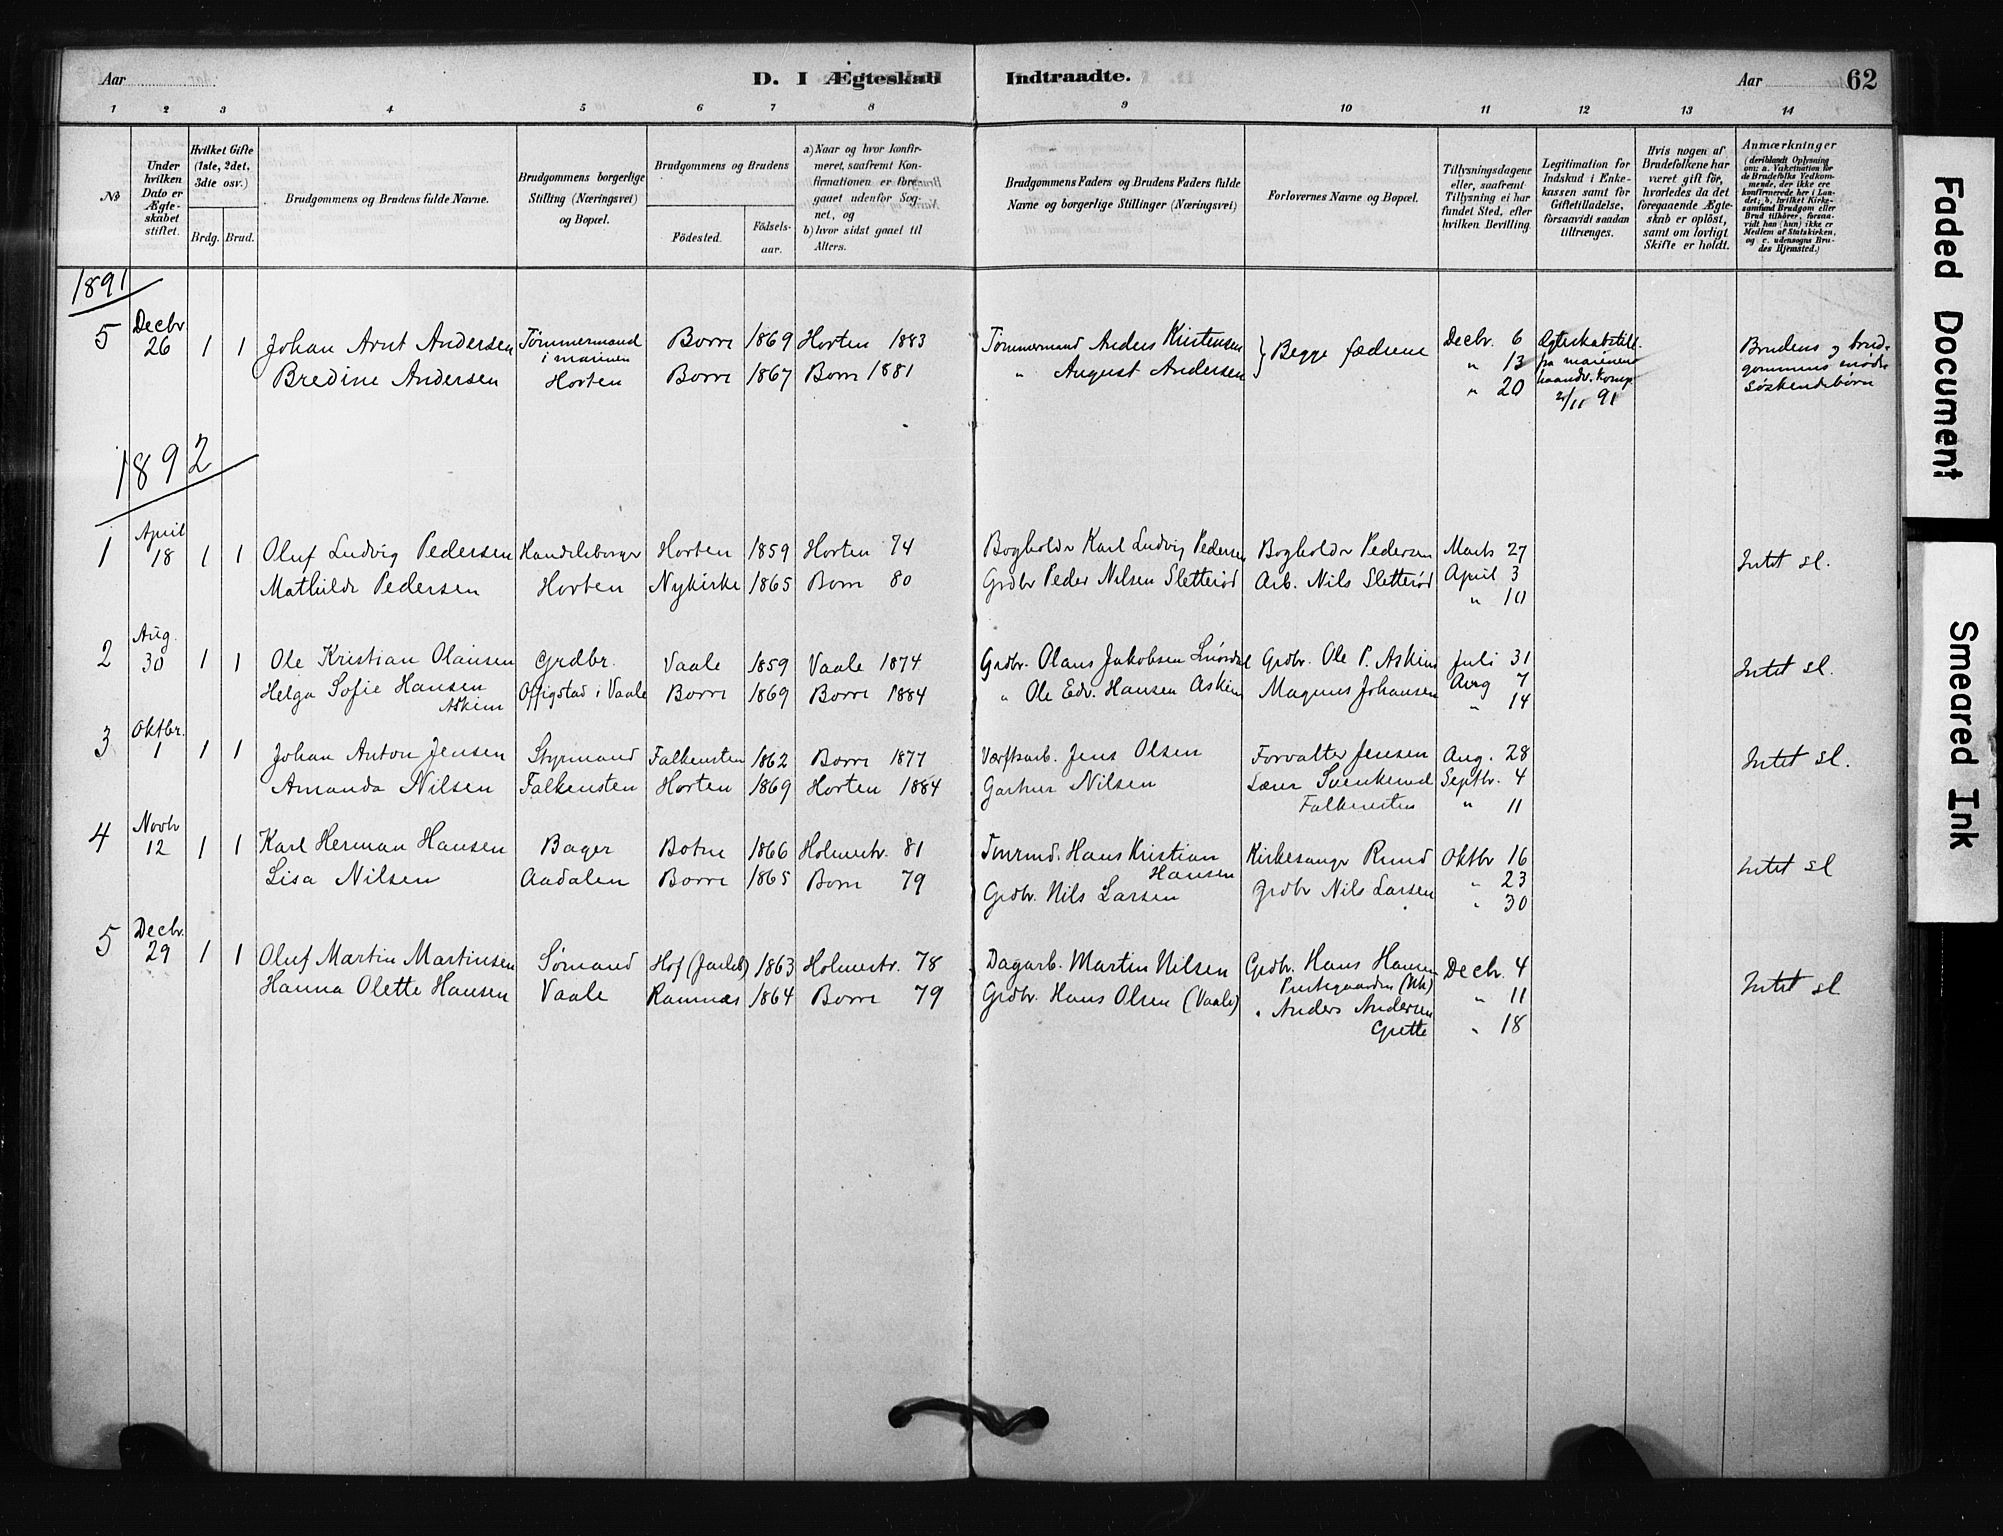 Aar
D. I Ægteskab Indtraadte.
Aar 62
1 2 3 4 5 6 7 8 9 10 11 12 13 14
№
Under hvilken Dato er Ægteskabet stiftet.
Hvilket Gifte (1ste, 2det, 3die osv.)
Brdg. Brud.
Brudgommens og Brudens fulde Navne.
Brudgommens borgerlige Stilling (Næringsvei) og Bopæl.
Brudgommens og Brudens
Födested.
Födsels-aar.
a) Naar og hvor konfirmeret, saafremt Konfirmationen er foregaaet udenfor Sognet, og
b) hvor sidst gaaet til Alters.
Brudgommens Faders og Brudens Faders fulde Navne og borgerlige Stillinger (Næringsvei)
Forlovernes Navne og Bopæl.
Tillysningsdagene eller, saafremt Tillysning ei har fundet Sted, efter hvilken Bevilling.
Legitimation for Indskud i Enkekassen samt for Giftetilladelse, forsaavidt saadan tiltrænges.
Hvis nogen af Brudefolkene har været gift för, hvorledes da det foregaaende Ægteskab er oplöst, samt om lovligt Skifte er holdt.
Anmærkninger
(deriblandt Oplysning om: a. Vakcination for de Brudefolks Vedkommende, der ikke ere konfirmerede her i Landet; b. hvilket Kirkesamfund Brudgom eller Brud tilhörer, forsaavidt han (hun) ikke er Medlem af Statskirken, og c. udensogns Brudes Hjemsted.)
1891
5 Decbr 26 1 1 Johan Arnt Andersen Tømmermand i marinen Borre 1869 Horten 1883 Tømmermand Anders Kristensen } Begge fædrene Decbr. 6 Ægteskabstill.
Bredine Andersen Horten Borre 1867 Borre 1881 " August Andersen " 13 fra marinens
" 20 haandv. komp. 2/11 91
Brudens og brudgommens mødre søskendebørn
1892
1 April 18 1 1 Oluf Ludvig Pedersen Handelsborger Horten 1859 Horten 74 Bogholder Karl Ludvig Pedersen Bogholder Pedersen Marts 27
Mathilde Pedersen Horten Nykirke 1865 Borre 80 Grdbr Peder Nilsen Sletterød Arb. Nils Sletterød April 3 Intet sl.
" 10
2 Aug. 30 1 1 Ole Kristian Olausen Grdbr. Vaale 1859 Vaale 1874 Grdbr. Olaus Jakobsen Grdbr. Ole P. Askim Juli 31
Helga Sofie Hansen Askim i Vaale Borre 1869 Borre 1884 " Ole Edv. Hansen Askim Magnus Johansen Aug 7 Intet sl.
" 14
3 Oktbr. 1 1 1 Johan Anton Jensen Styrmand Falkensten 1862 Borre 1877 Værftsarb. Jens Olsen Forvalter Jensen Aug. 28
Amanda Nilsen Falkensten Horten 1869 Horten 1884 Gartner Nilsen Lærer Svenkerud Septbr. 4 Intet sl.
Falkensten " 11
4 Novbr 12 1 1 Karl Herman Hansen Bager Botne 1866 Holmestr. 81 Hans Kristian Hansen Kirkesanger Ruud Oktbr 16
Lisa Nilsen Aadalen Borre 1865 Borre 79 Grdbr. Nils Larsen Grdbr Nils Larsen " 23 Intet sl
" 30
5 Decbr. 29 1 1 Oluf Martin Martinsen Sømand Hof (Jarlsb) 1863 Holmestr. 78 Dagarb. Martin Nilsen Grdbr. Hans Hansen Decbr. 4
Hanna Olette Hansen Vaale Ramnæs 1864 Borre 79 Grdbr. Hans Olsen (Vaale) Prestegaarden (Nk) " 11 Intet sl
" Anders Andersen
Grette " 18
Faded Document
Smeared Ink